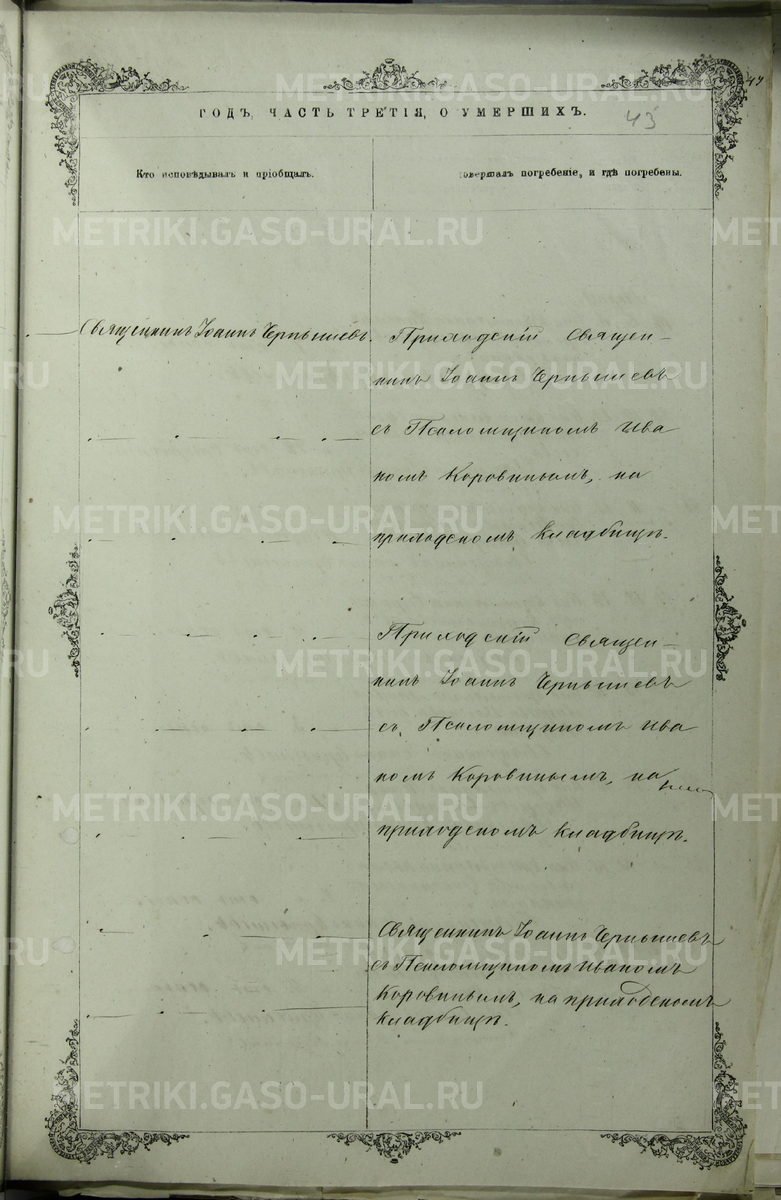 ГОДЪ, ЧАСТЬ ТРЕТІЯ, О УМЕРШИХЪ.
43
Кто исповѣдывалъ и пріобщалъ.
совершалъ погребеніе, и гдѣ погребены.
Священникъ Іоаннъ Чернышевъ.
Приходскій Священ-
никъ Іоаннъ Чернышевъ
съ Псаломщикомъ Ива
номъ Коровинымъ, на
приходскомъ кладбищѣ.
Приходскій Священ-
никъ Іоаннъ Чернышевъ
съ Псаломщикомъ Ива
номъ Коровинымъ, на
приходскомъ кладбищѣ.
Священникъ Іоаннъ Чернышевъ
съ Псаломщикомъ Иваномъ
Коровинымъ, на приходскомъ
кладбищѣ.
METRIKI.GASO-URAL.RU